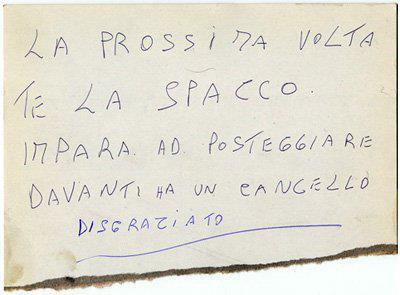 LA PROSSIMA VOLTA
TE LA SPACCO.
IMPARA AD POSTEGGIARE
DAVANTI HA UN CANGELLO
DISGRAZIATO